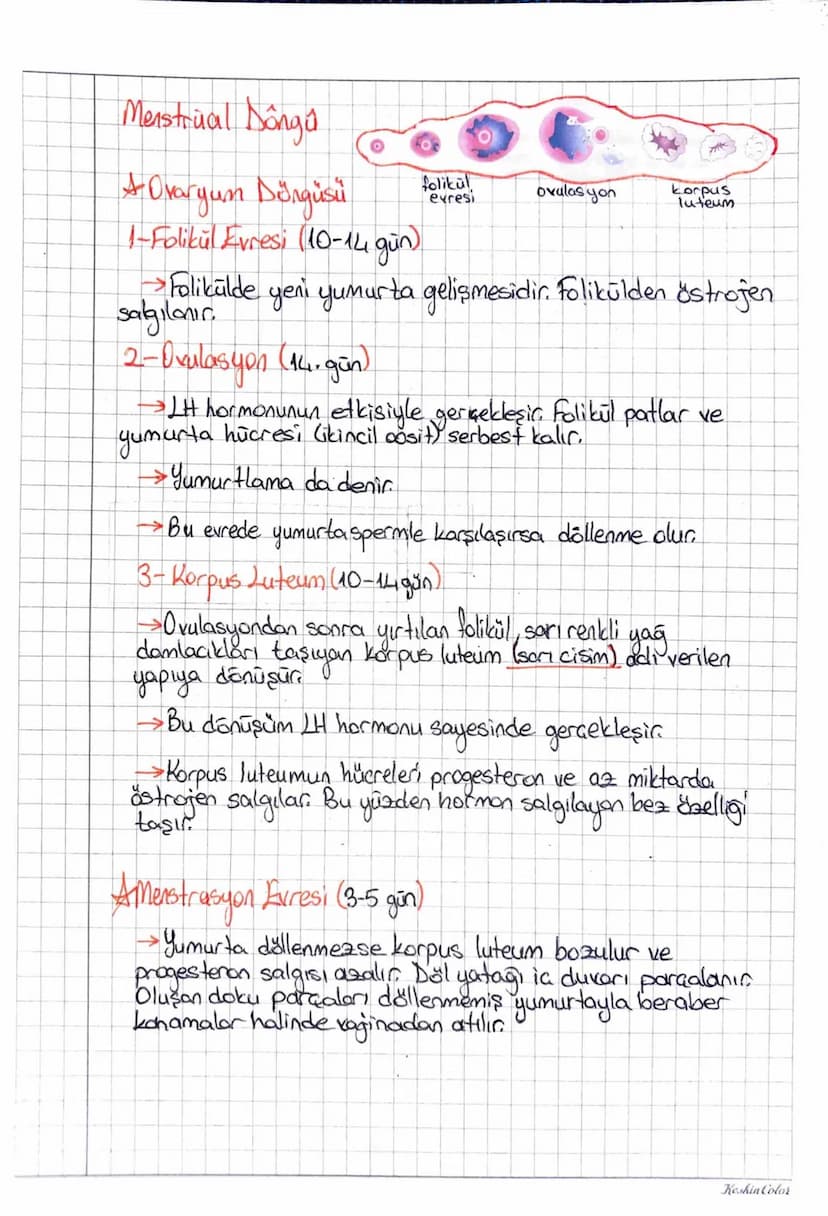 Menstrüal Döngü
folikül evresi
ovulasyon
korpus luteum
☆Ovaryum Döngüsü
1-Folikül Evresi (10-14 gün)
→Folikülde yeni yumurta gelişmesidir. Folikülden östrojen
salgılanır.
2-Ovulasyon (14. gün)
→LH hormonunun etkisiyle gerçekleşir. Folikül patlar ve
yumurta hücresi (ikincil oosit) serbest kalır.
→Yumurtlama da denir.
→Bu evrede yumurta spermle karşılaşırsa döllenme olur.
3-Korpus Luteum (10-14 gün)
→Ovulasyondan sonra yırtılan folikül, sarı renkli yağ
damlacıkları taşıyan korpus luteum (sarı cisim) adı verilen
yapıya dönüşür.
→Bu dönüşüm LH hormonu sayesinde gerçekleşir.
→Korpus luteumun hücreleri progesteron ve az miktarda
östrojen salgılar. Bu yüzden hormon salgılayan bez özelliği
taşır.
☆Menstrasyon Evresi (3-5 gün)
→Yumurta döllenmezse korpus luteum bozulur ve
progesteron salgısı azalır. Döl yatağı iç duvarı parçalanır.
Oluşan doku parçaları döllenmemiş yumurtayla beraber
kanamalar halinde vajinadan atılır.
KeskinColor